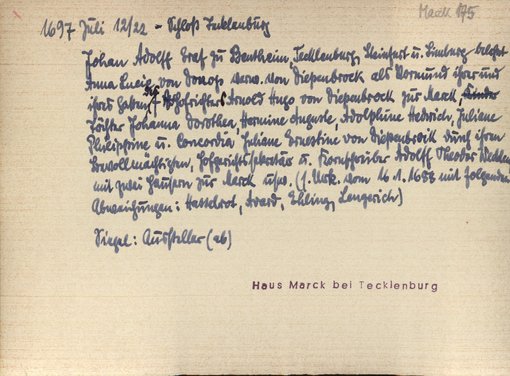 Mark 175
1697 Juli 12/22 - Schloß Tecklenburg
Johan Adolff Graf zu Bentheim, Tecklenburg, Steinfurt u. Limburg belehnt
Anna Lucia von Donop verw. von Diepenbrock als Vormund ihrer und
ihres Gatten, des † Hofrichters Arnold Hugo von Diepenbrock zur Marck, Kinder
Töchter Johanna Dorothea, Hermine Auguste, Adolphine Hedwich, Juliane
Philippine u. Concordia Juliane Ernestine von Diepenbroick durch ihren
Bevollmächtigten, Hofgerichtssekretär u. Kornschreiber Adolff Theodor
mit zwei Häusern zur Marck usw. (s. Urk. vom 16.1.1688 mit folgenden
Abweichungen: Hasselrot, Lengerich)
Siegel: Aussteller (ab)
Haus Marck bei Tecklenburg